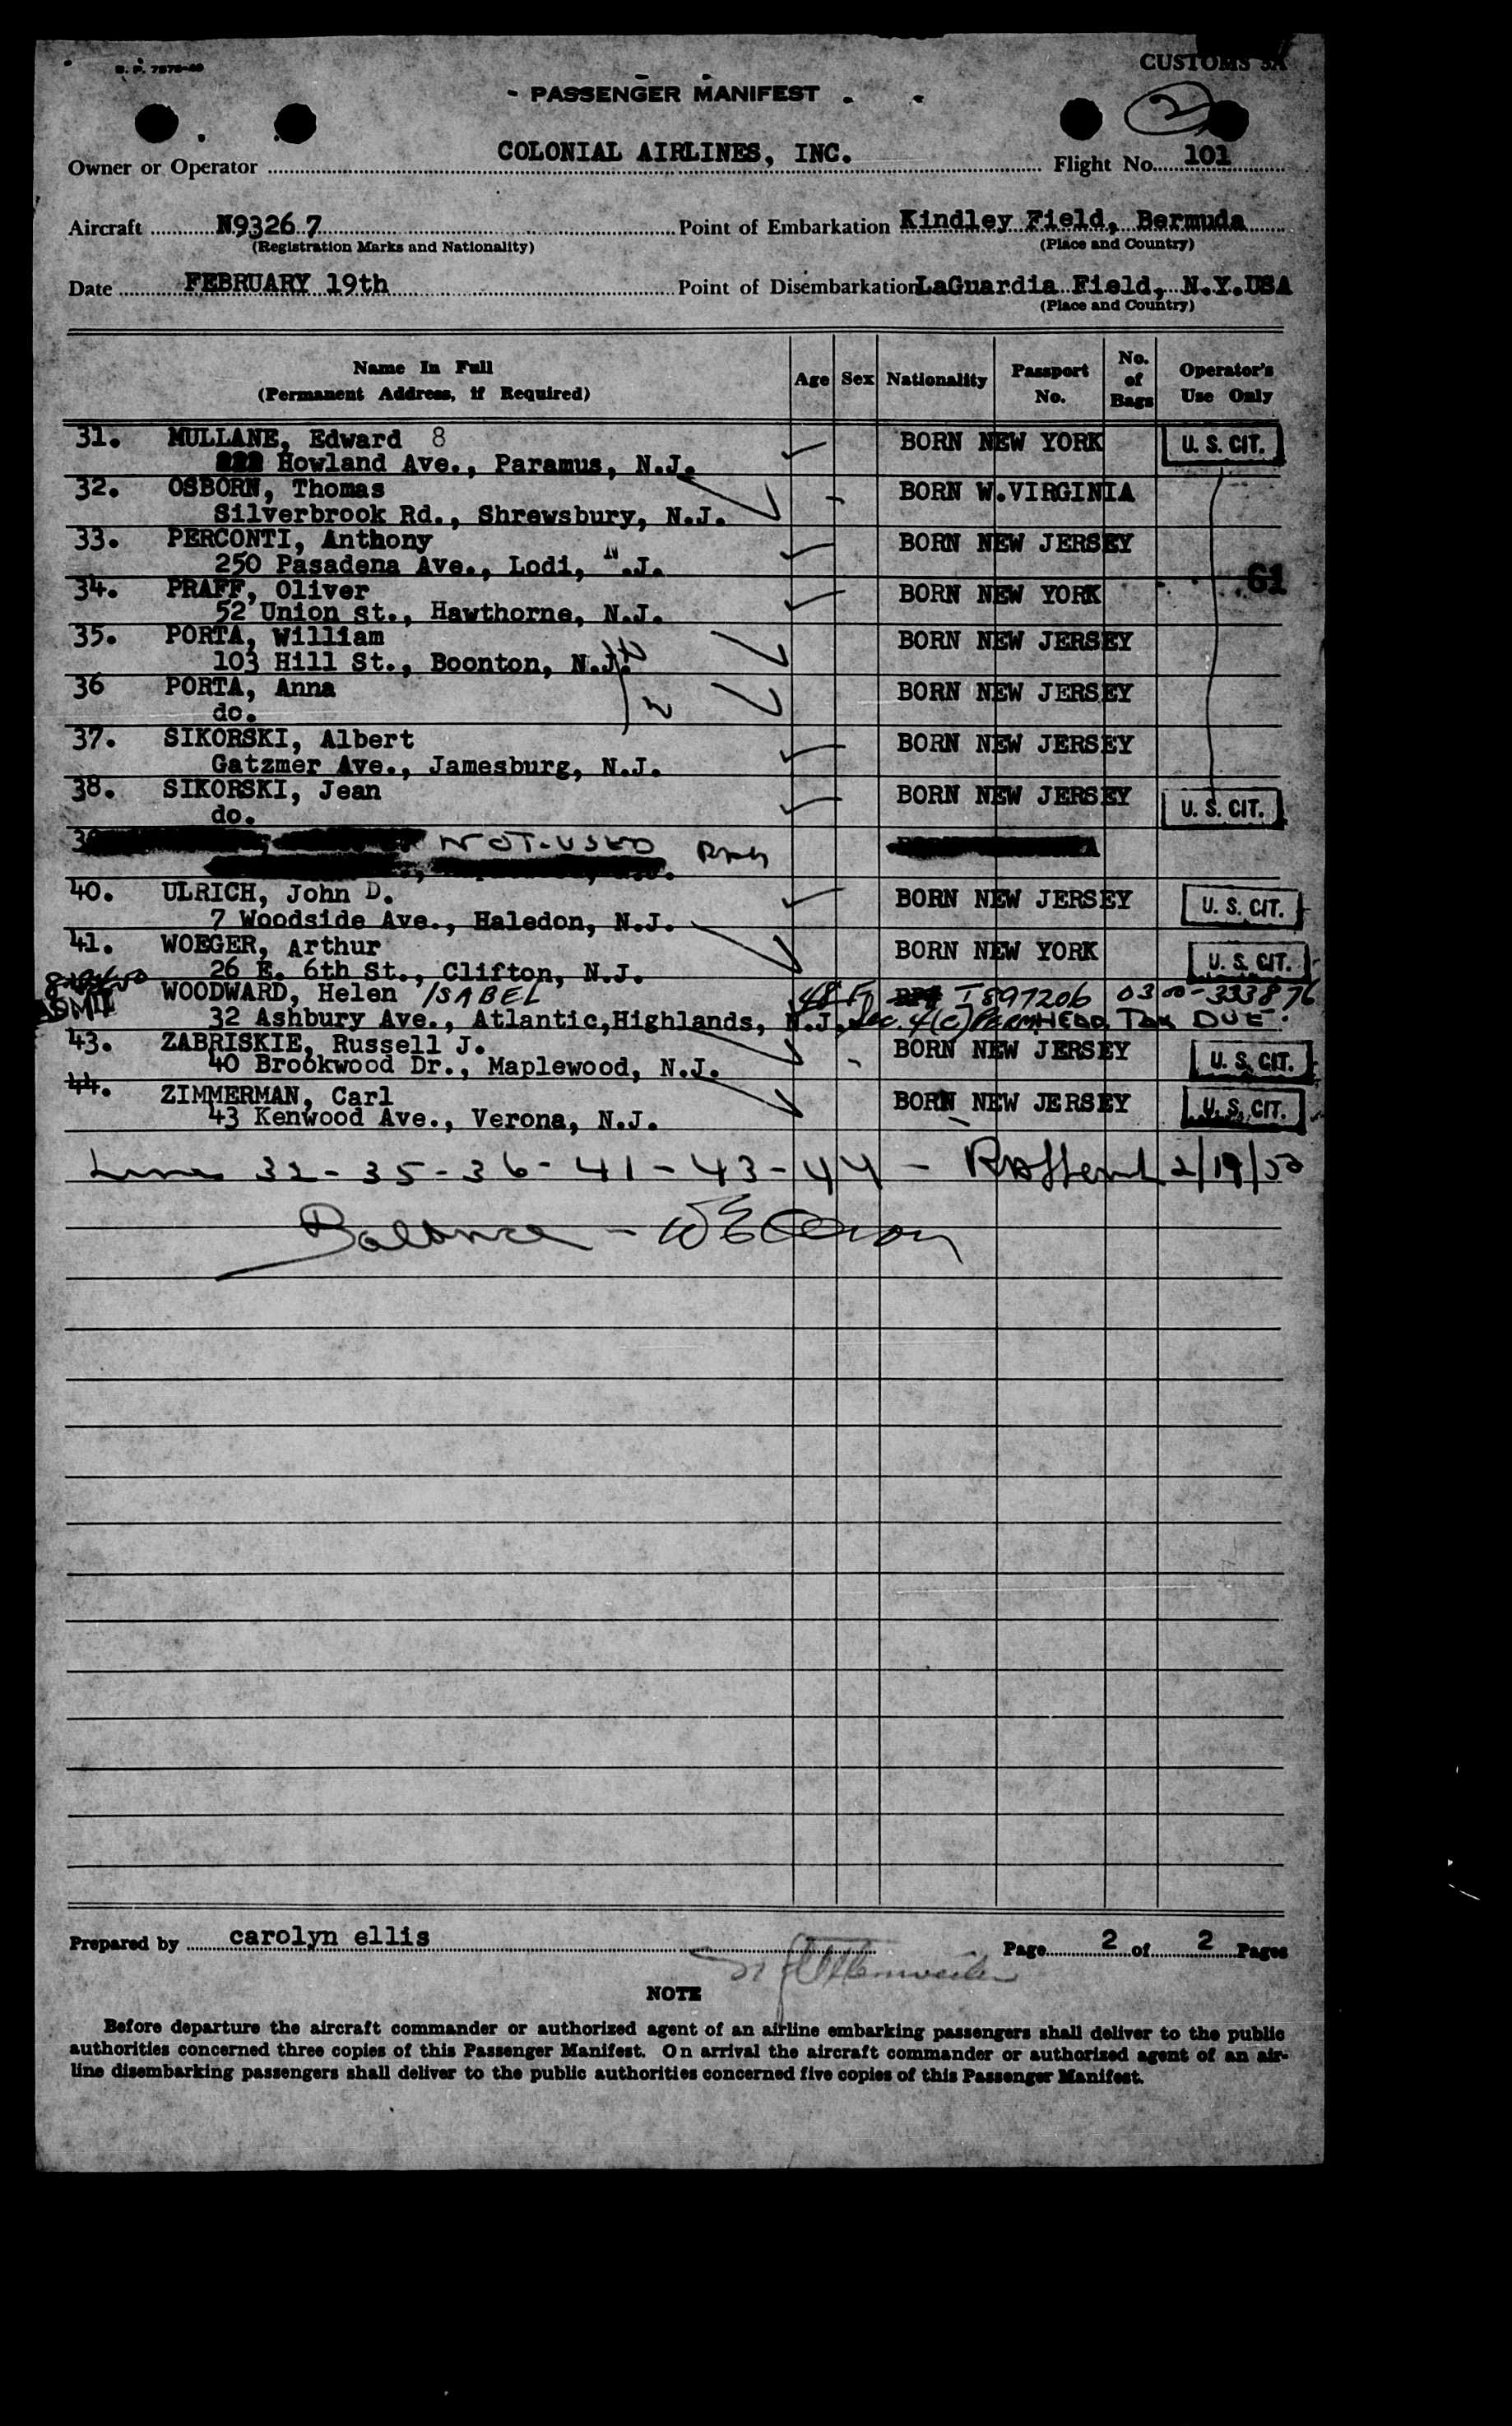 CUSTOMS
- PASSENGER MANIFEST
2
Owner or Operator COLONIAL AIRLINES, INC. Flight No. 101
Aircraft N93267 Point of Embarkation Kindley Field, Bermuda
(Registration Marks and Nationality) (Place and Country)
Date FEBRUARY 19th Point of Disembarkation LaGuardia Field, N.Y.USA
(Place and Country)
Name In Full (Permanent Address, if Required) Age Sex Nationality Passport No. No. of Bags Operator's Use Only
31. MULLANE, Edward 8 BORN NEW YORK U. S. CIT.
222 Howland Ave., Paramus, N.J.
32. OSBORN, Thomas BORN W.VIRGINIA
Silverbrook Rd., Shrewsbury, N.J.
33. PERCONTI, Anthony BORN NEW JERSEY
250 Pasadena Ave., Lodi, N.J.
61
34. PRAFF, Oliver BORN NEW YORK
52 Union St., Hawthorne, N.J.
35. PORTA, William BORN NEW JERSEY
103 Hill St., Boonton, N.J.
36 PORTA, Anna BORN NEW JERSEY
do.
37. SIKORSKI, Albert BORN NEW JERSEY
Gatzmer Ave., Jamesburg, N.J.
38. SIKORSKI, Jean BORN NEW JERSEY U. S. CIT.
do.
3 NOT-USED
40. ULRICH, John D. BORN NEW JERSEY U. S. CIT.
7 Woodside Ave., Haledon, N.J.
41. WOEGER, Arthur BORN NEW YORK U. S. CIT.
26 E. 6th St., Clifton, N.J.
WOODWARD, Helen ISABEL 48 F I 897206 0300-333876
ADMIT
32 Ashbury Ave., Atlantic,Highlands, N.J. Sec. 4(c) PERM HEAD TAX DUE.
43. ZABRISKIE, Russell J. BORN NEW JERSEY U. S. CIT.
40 Brookwood Dr., Maplewood, N.J.
44. ZIMMERMAN, Carl BORN NEW JERSEY U. S. CIT.
43 Kenwood Ave., Verona, N.J.
Lines 32-35-36-41-43-44 - 2/19/50
Balance -
Prepared by carolyn ellis Page 2 of 2 Pages
NOTE
Before departure the aircraft commander or authorized agent of an airline embarking passengers shall deliver to the public
authorities concerned three copies of this Passenger Manifest. On arrival the aircraft commander or authorized agent of an air-
line disembarking passengers shall deliver to the public authorities concerned five copies of this Passenger Manifest.